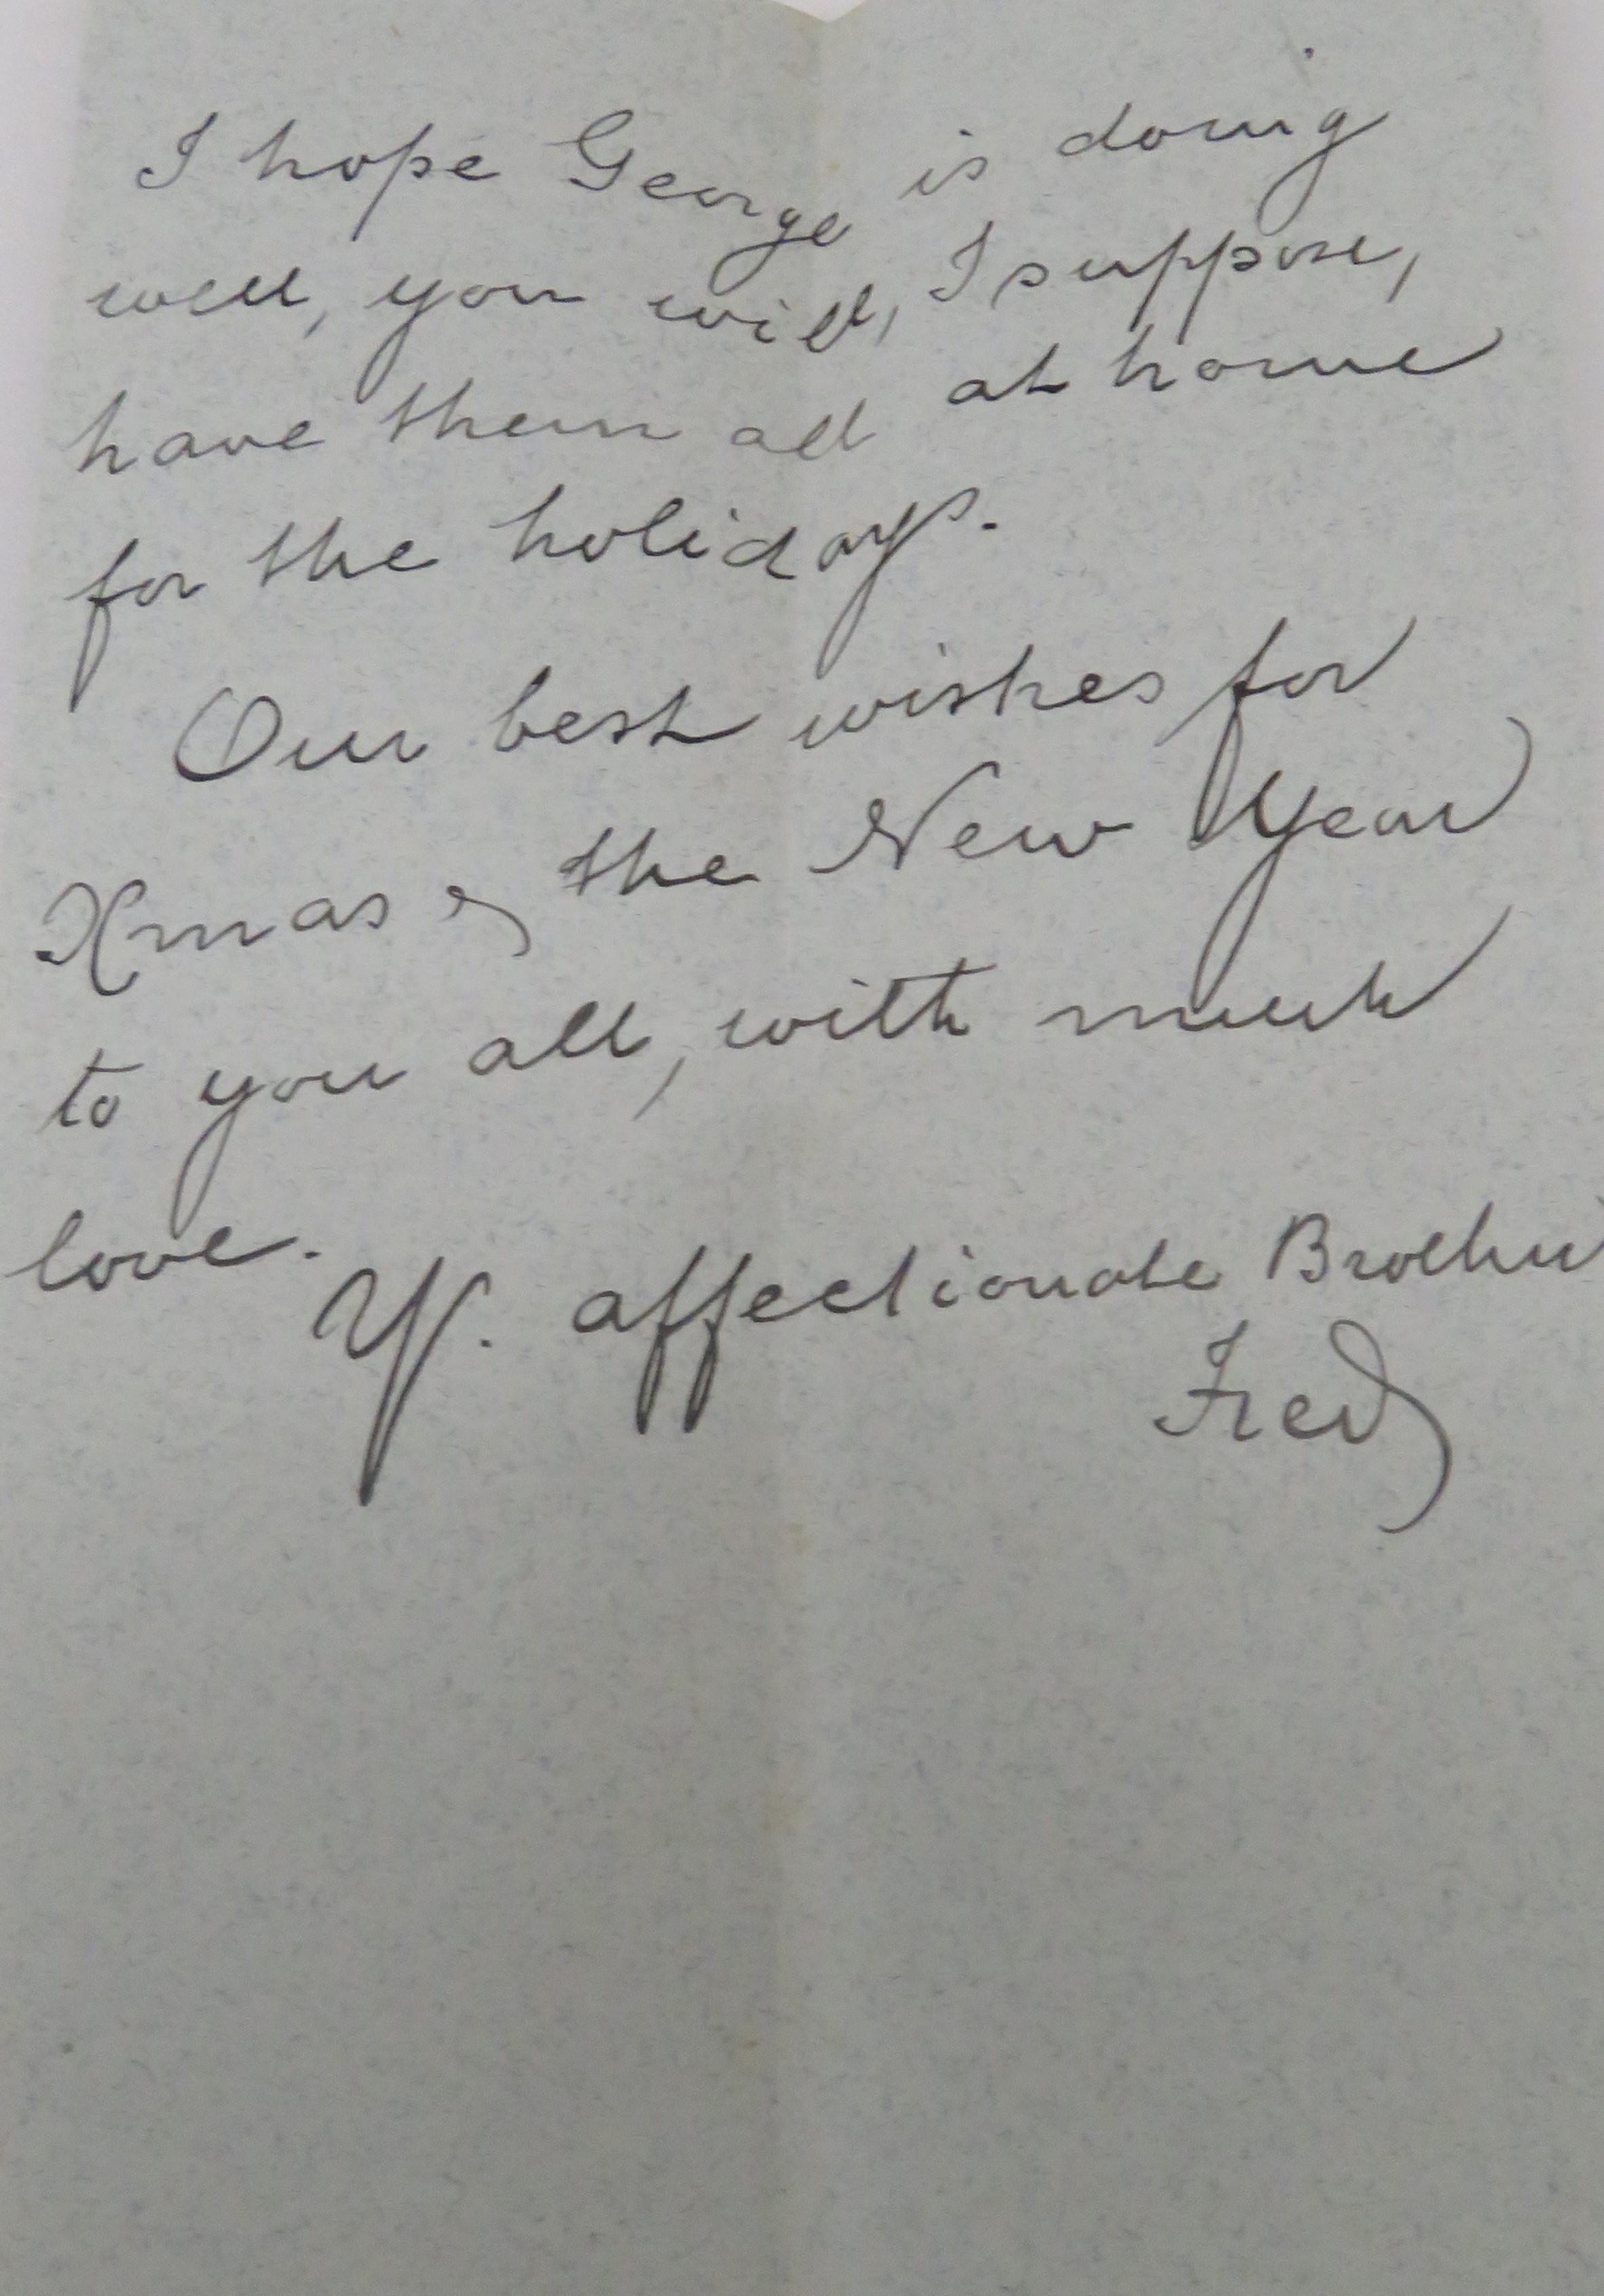 I hope George is doing
well, you will, I suppose,
have them all at home
for the holidays.
Our best wishes for
Xmas & the New Year
to you all, with much
love.
Yr. affectionate Brother
Fred